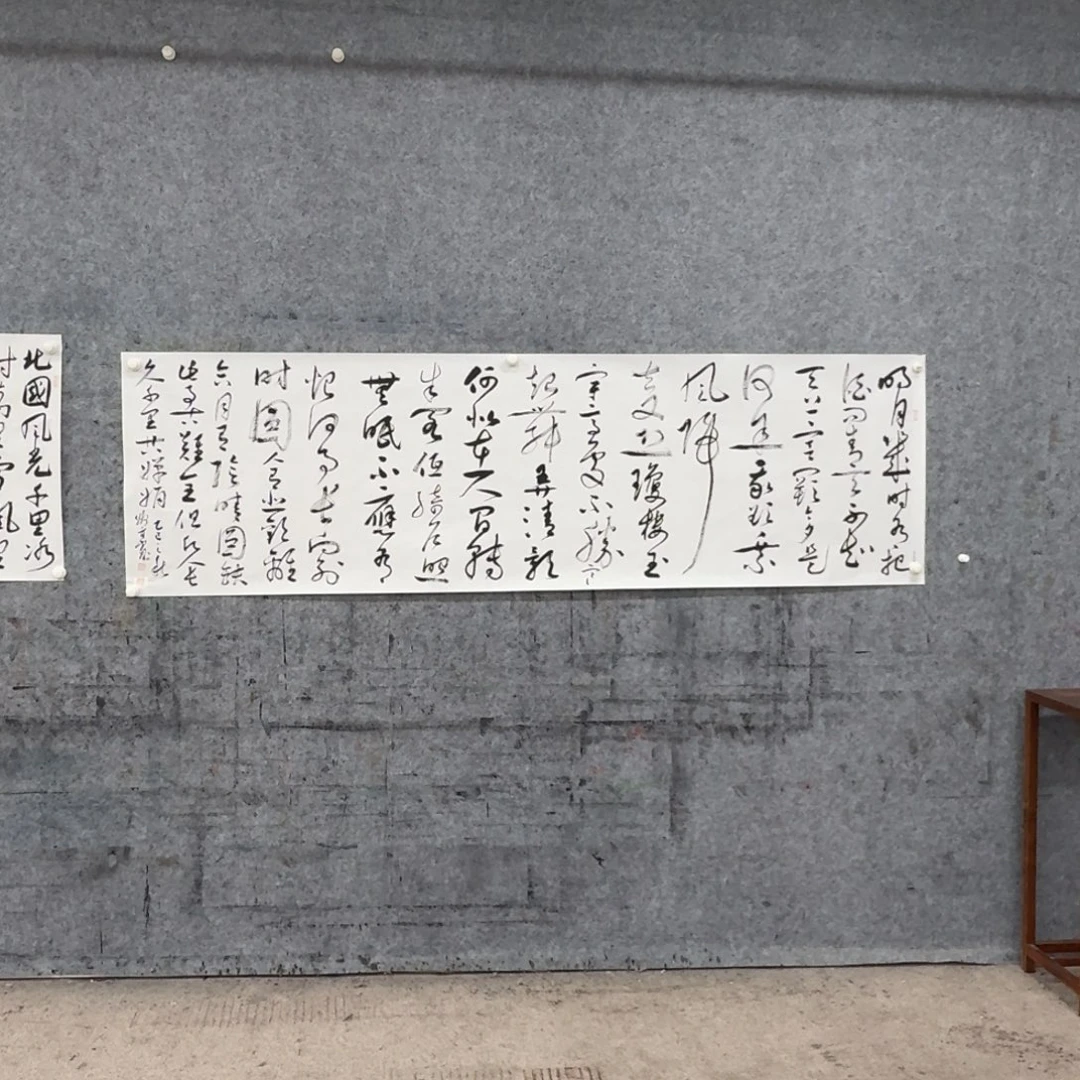 明月幾时有把
酒問青天不知
天上宮闕今夕是
何年我欲乘
风歸
去又恐瓊樓玉
宇高處不勝寒
起舞弄清影
何似在人间轉
朱閣低綺户照
無眠不應有
恨何事长向别
时圓人有悲歡離
合月有陰晴圓缺
此事古難全但願人长
久千里共嬋娟
北國风光千里冰